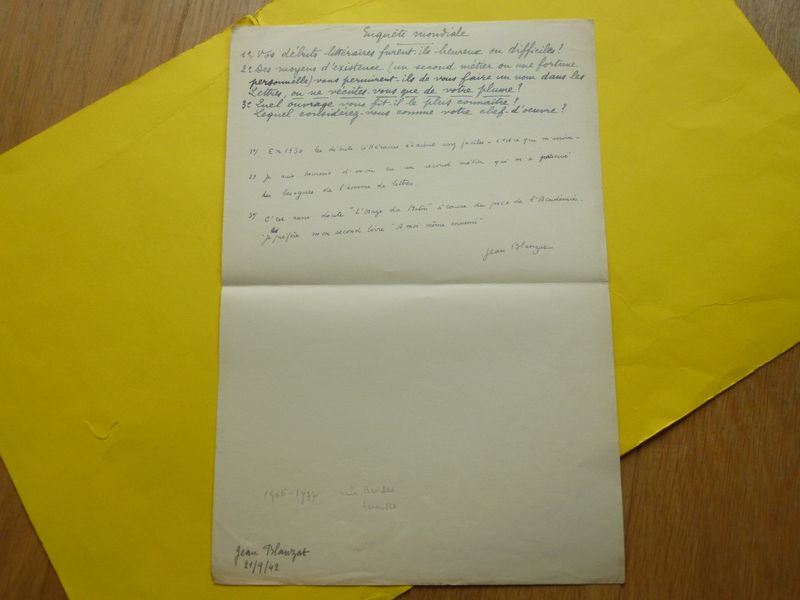 Enquête mondiale
1º Vos débuts littéraires furent-ils heureux ou difficiles?
2º Des moyens d'existence (un second métier ou une fortune
personnelle) vous permirent-ils de vous faire un nom dans les
Lettres, ou ne vécûtes-vous que de votre plume?
3º Quel ouvrage vous fit-il le plus connaître?
Lequel considérez-vous comme votre chef-d'oeuvre?
1º) En 1930 les débuts littéraires étaient assez faciles -
2º) Je suis heureux d'avoir eu un second métier qui m'a
des besognes de l'homme de lettres.
3º) C'est sans doute "L'Orage du Matin" à cause du prix de l'Académie.
Je préfère mon second livre "A moi-même ennemi"
Jean Blanzat
1906-1977
Jean Blanzat
21/9/42